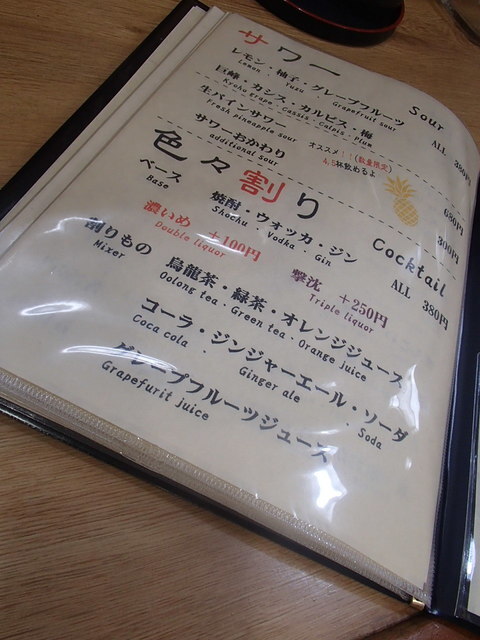 サワー Sour
レモン・柚子・グレープフルーツ ALL 380円
Lemon Yuzu Grapefruit sour
巨峰・カシス・カルピス・梅
Kyoho grape・Cassis・Calpis・Plum
生パインサワー オススメ!!(数量限定) 680円
Fresh pineapple sour 4,5杯飲めるよ
サワーおかわり 300円
additional sour
色々割り Cocktail
ベース 焼酎・ウォッカ・ジン ALL 380円
Base Shochu・Vodka・Gin
濃いめ +100円 撃沈 +250円
Double liquor Triple liquor
割りもの 烏龍茶・緑茶・オレンジジュース
Mixer Oolong tea・Green tea・Orange juice
コーラ・ジンジャーエール・ソーダ
Coca cola・Ginger ale・Soda
グレープフルーツジュース
Grapefurit juice